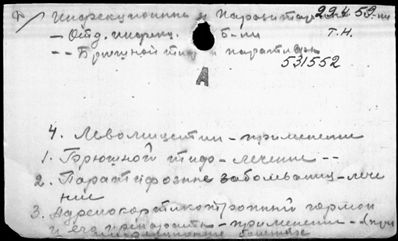 Инфекционные и Паразитарн. б-ни
229459
— Отд. инфекц. б-ни
т.н.
-- Брюшной тиф и паратифы
531552
А
4. Левомицетин - применение
1. Брюшной тиф - лечение --
2. Паратифозные заболевания - лече
ние
3. Адренокортикотропный гормон
и его препараты - применение -